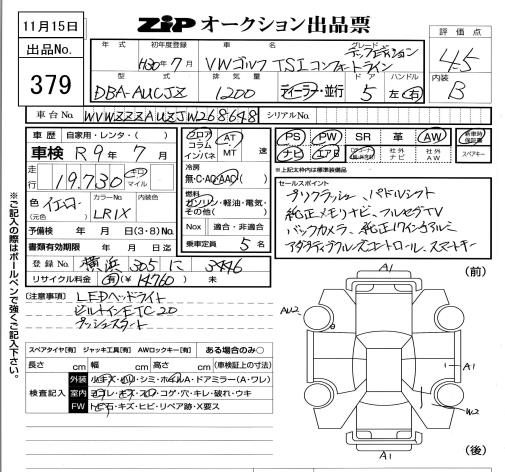 11月15日
ZIP オークション出品票
評価点
4.5
内装
B
出品No.
379
年式 初年度登録 車名 グレード
H30年7月 VWゴルフ TSIコンフォートライン
テックエディション
型式 排気量 ドア ハンドル
DBA-AUCJZ 1200 ディーラー・並行 5 左・右
車台No. WVWZZZAUZJW268648 シリアルNo.
車歴 自家用・レンタ・( )
車検 R9年7月
走行 19,730 キロ マイル
色 イエロー (元色) カラーNo. LR1X 内装色
予備検 年 月 日(3・8)No.
書類有効期限 年 月 日迄
登録No. 横浜 305 に 3446
リサイクル料金 有(¥14760) 未
フロア コラム インパネ AT MT 速
冷房 無・C・AC・AAC( )
燃料 ガソリン・軽油・電気・その他( )
Nox 適合・非適合
乗車定員 5名
PS PW SR 革 AW 新車時保証書
ナビ エアB 社外ナビ 社外AW スペアキー
※上記太枠内は標準装備品
セールスポイント
プリクラッシュ、パドルシフト
純正メモリナビ、フルセグTV
バックカメラ、純正17インチアルミ
アダプティブクルーズコントロール、スマートキー
[注意事項] LEDヘッドライト
ビルトインETC2.0
プッシュスタート
スペアタイヤ[有] ジャッキ工具[有] AWロックキー[有] ある場合のみ○
長さ cm 幅 cm 高さ cm (車検証上の寸法)
検査記入
外装 小キズ・小凹・シミ・ホイルA・ドアミラー(A・ワレ)
室内 ヨゴレ・キズ・スレ・コゲ・穴・キレ・破れ・ウキ
FW トビ石・キズ・ヒビ・リペア跡・X要ス
※ご記入の際はボールペンで強くご記入下さい。
(前)
A1
AW2
A1
W2
A1
(後)